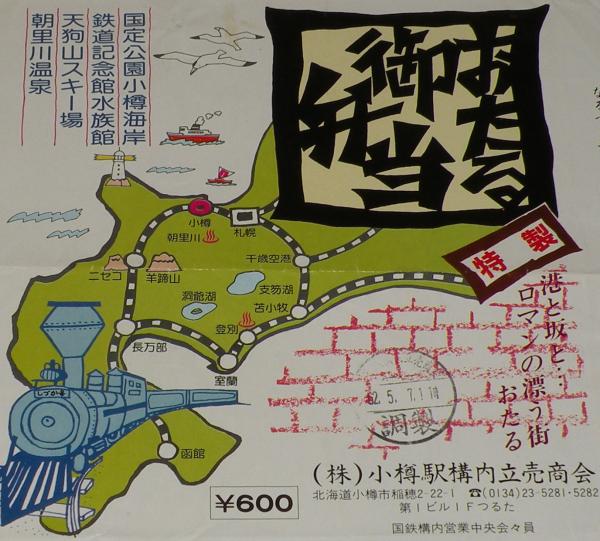 国定公園小樽海岸
鉄道記念館水族館
天狗山スキー場
朝里川温泉
おたる
御弁当
特製
港と坂と…
ロマンの漂う街
おたる
小樽
札幌
朝里川
千歳空港
ニセコ
羊蹄山
支笏湖
洞爺湖
苫小牧
登別
長万部
室蘭
しづか号
函館
62.5.7.11
調製
¥600
(株)小樽駅構内立売商会
北海道小樽市稲穂2-22-1 ☎(0134)23-5281・5282
第1ビル1Fつるた
国鉄構内営業中央会々員